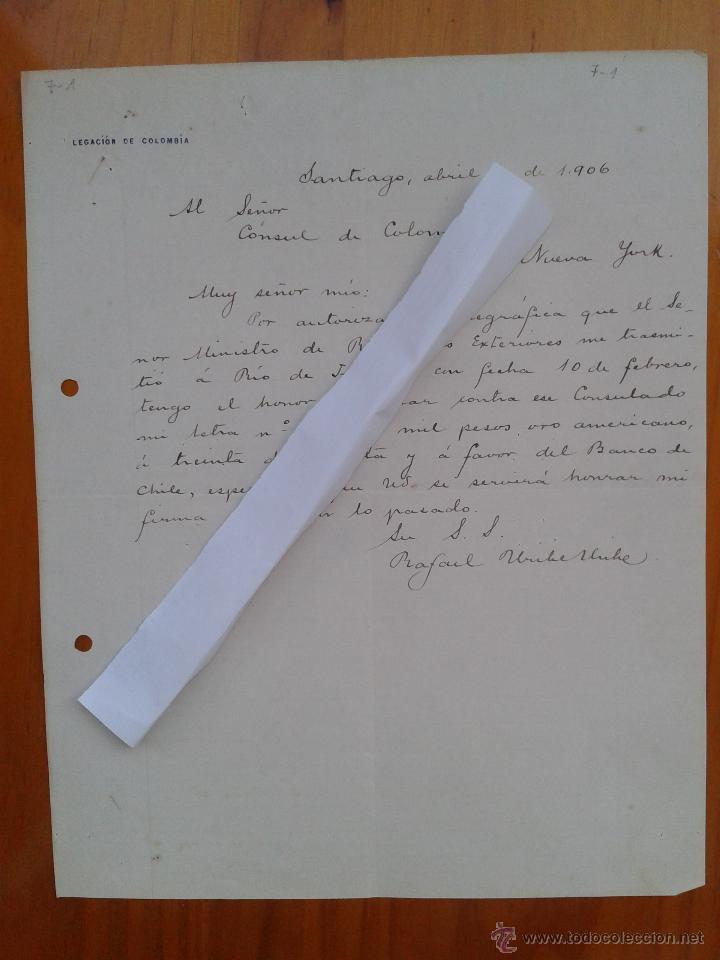 7-1 7-1
LEGACIÓN DE COLOMBIA
Santiago, abril de 1.906
Al Señor
Cónsul de Colom
Nueva York.
Muy señor mío:
Por autoriza egráfica que el Se-
ñor Ministro de R s Exteriores me trasmi-
tió á Río de J con fecha 10 de febrero,
tengo el honor ar contra ese Consulado
mi letra nº mil pesos oro americano,
á treinta d ta y á favor del Banco de
Chile, espe que Ud. se servirá honrar mi
firma lo pasado.
Su S. S.
Rafael Uribe Uribe
www.todocoleccion.net